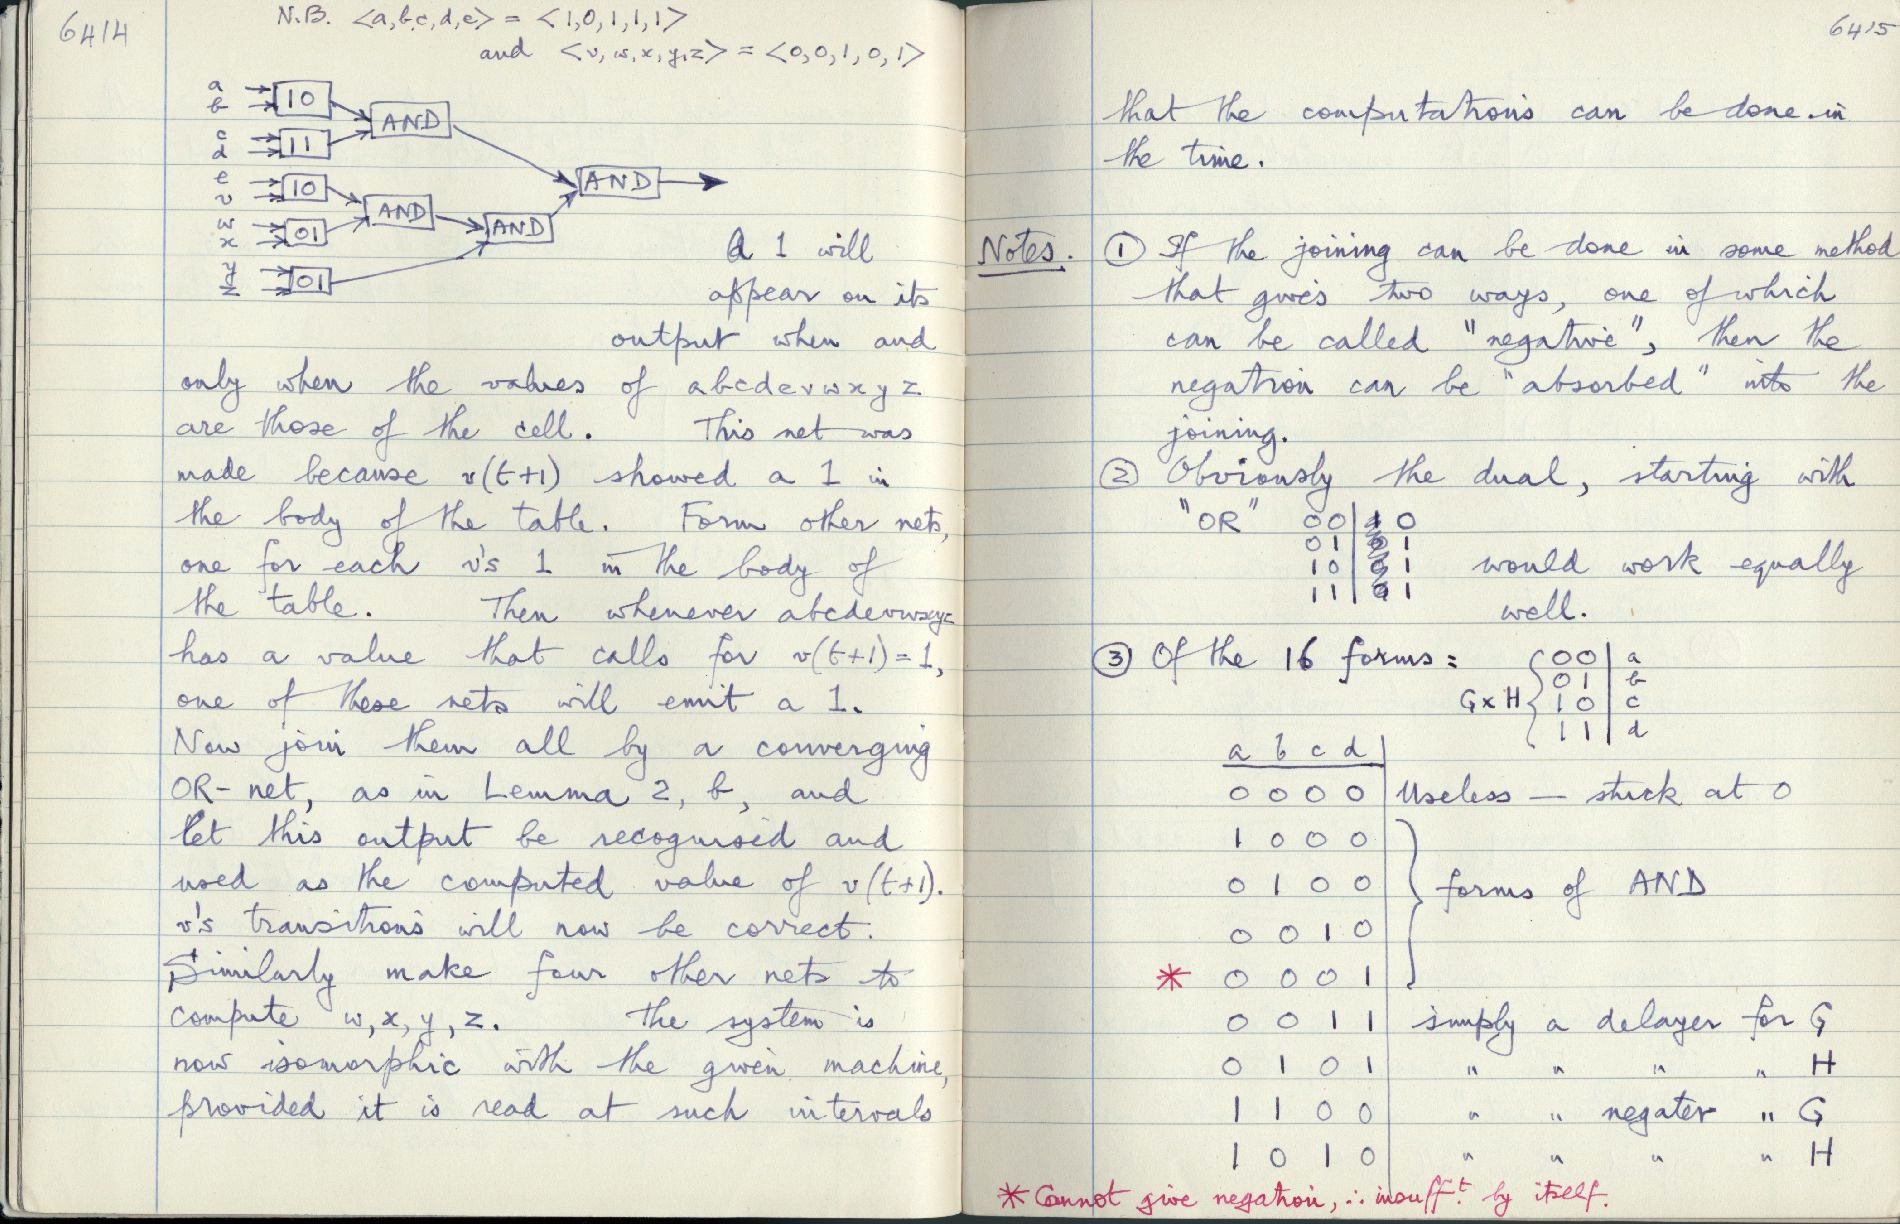 6414
N.B. <a,b,c,d,e> = <1,0,1,1,1>
and <v,w,x,y,z> = <0,0,1,0,1>
a
b
10
AND
c
d
11
e
v
10
AND
AND
w
x
01
AND
y
z
01
A 1 will
appear on its
output when and
only when the values of abcdevwxyz
are those of the cell. This net was
made because v(t+1) showed a 1 in
the body of the table. Form other nets,
one for each v's 1 in the body of
the table. Then whenever abcdevwxyz
has a value that calls for v(t+1)=1,
one of these nets will emit a 1.
Now join them all by a converging
OR-net, as in Lemma 2, b, and
let this output be recognised and
used as the computed value of v(t+1).
v's transitions will now be correct.
Similarly make four other nets to
compute w,x,y,z. The system is
now isomorphic with the given machine,
provided it is read at such intervals
6415
that the computations can be done in
the time.
Notes. ① If the joining can be done in some method
that gives two ways, one of which
can be called "negative", then the
negation can be "absorbed" into the
joining.
② Obviously the dual, starting with
"OR" 00| 0
01| 1
10| 1 would work equally
11| 1
well.
③ Of the 16 forms: 00| a
01| b
G×H 10| c
11| d
a b c d
0 0 0 0 Useless – stuck at 0
1 0 0 0
0 1 0 0 forms of AND
0 0 1 0
* 0 0 0 1
0 0 1 1 simply a delayer for G
0 1 0 1 " " " " H
1 1 0 0 " " negater " G
1 0 1 0 " " " " H
* Cannot give negation, ∴ insuff.t by itself.